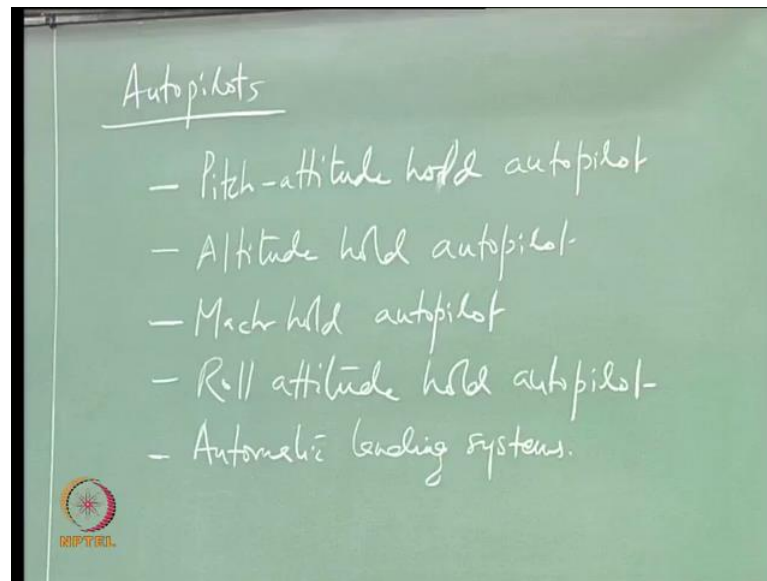 Autopilots
– Pitch-attitude hold autopilot
– Altitude hold autopilot
– Mach hold autopilot
– Roll attitude hold autopilot
– Automatic landing systems.
NPTEL